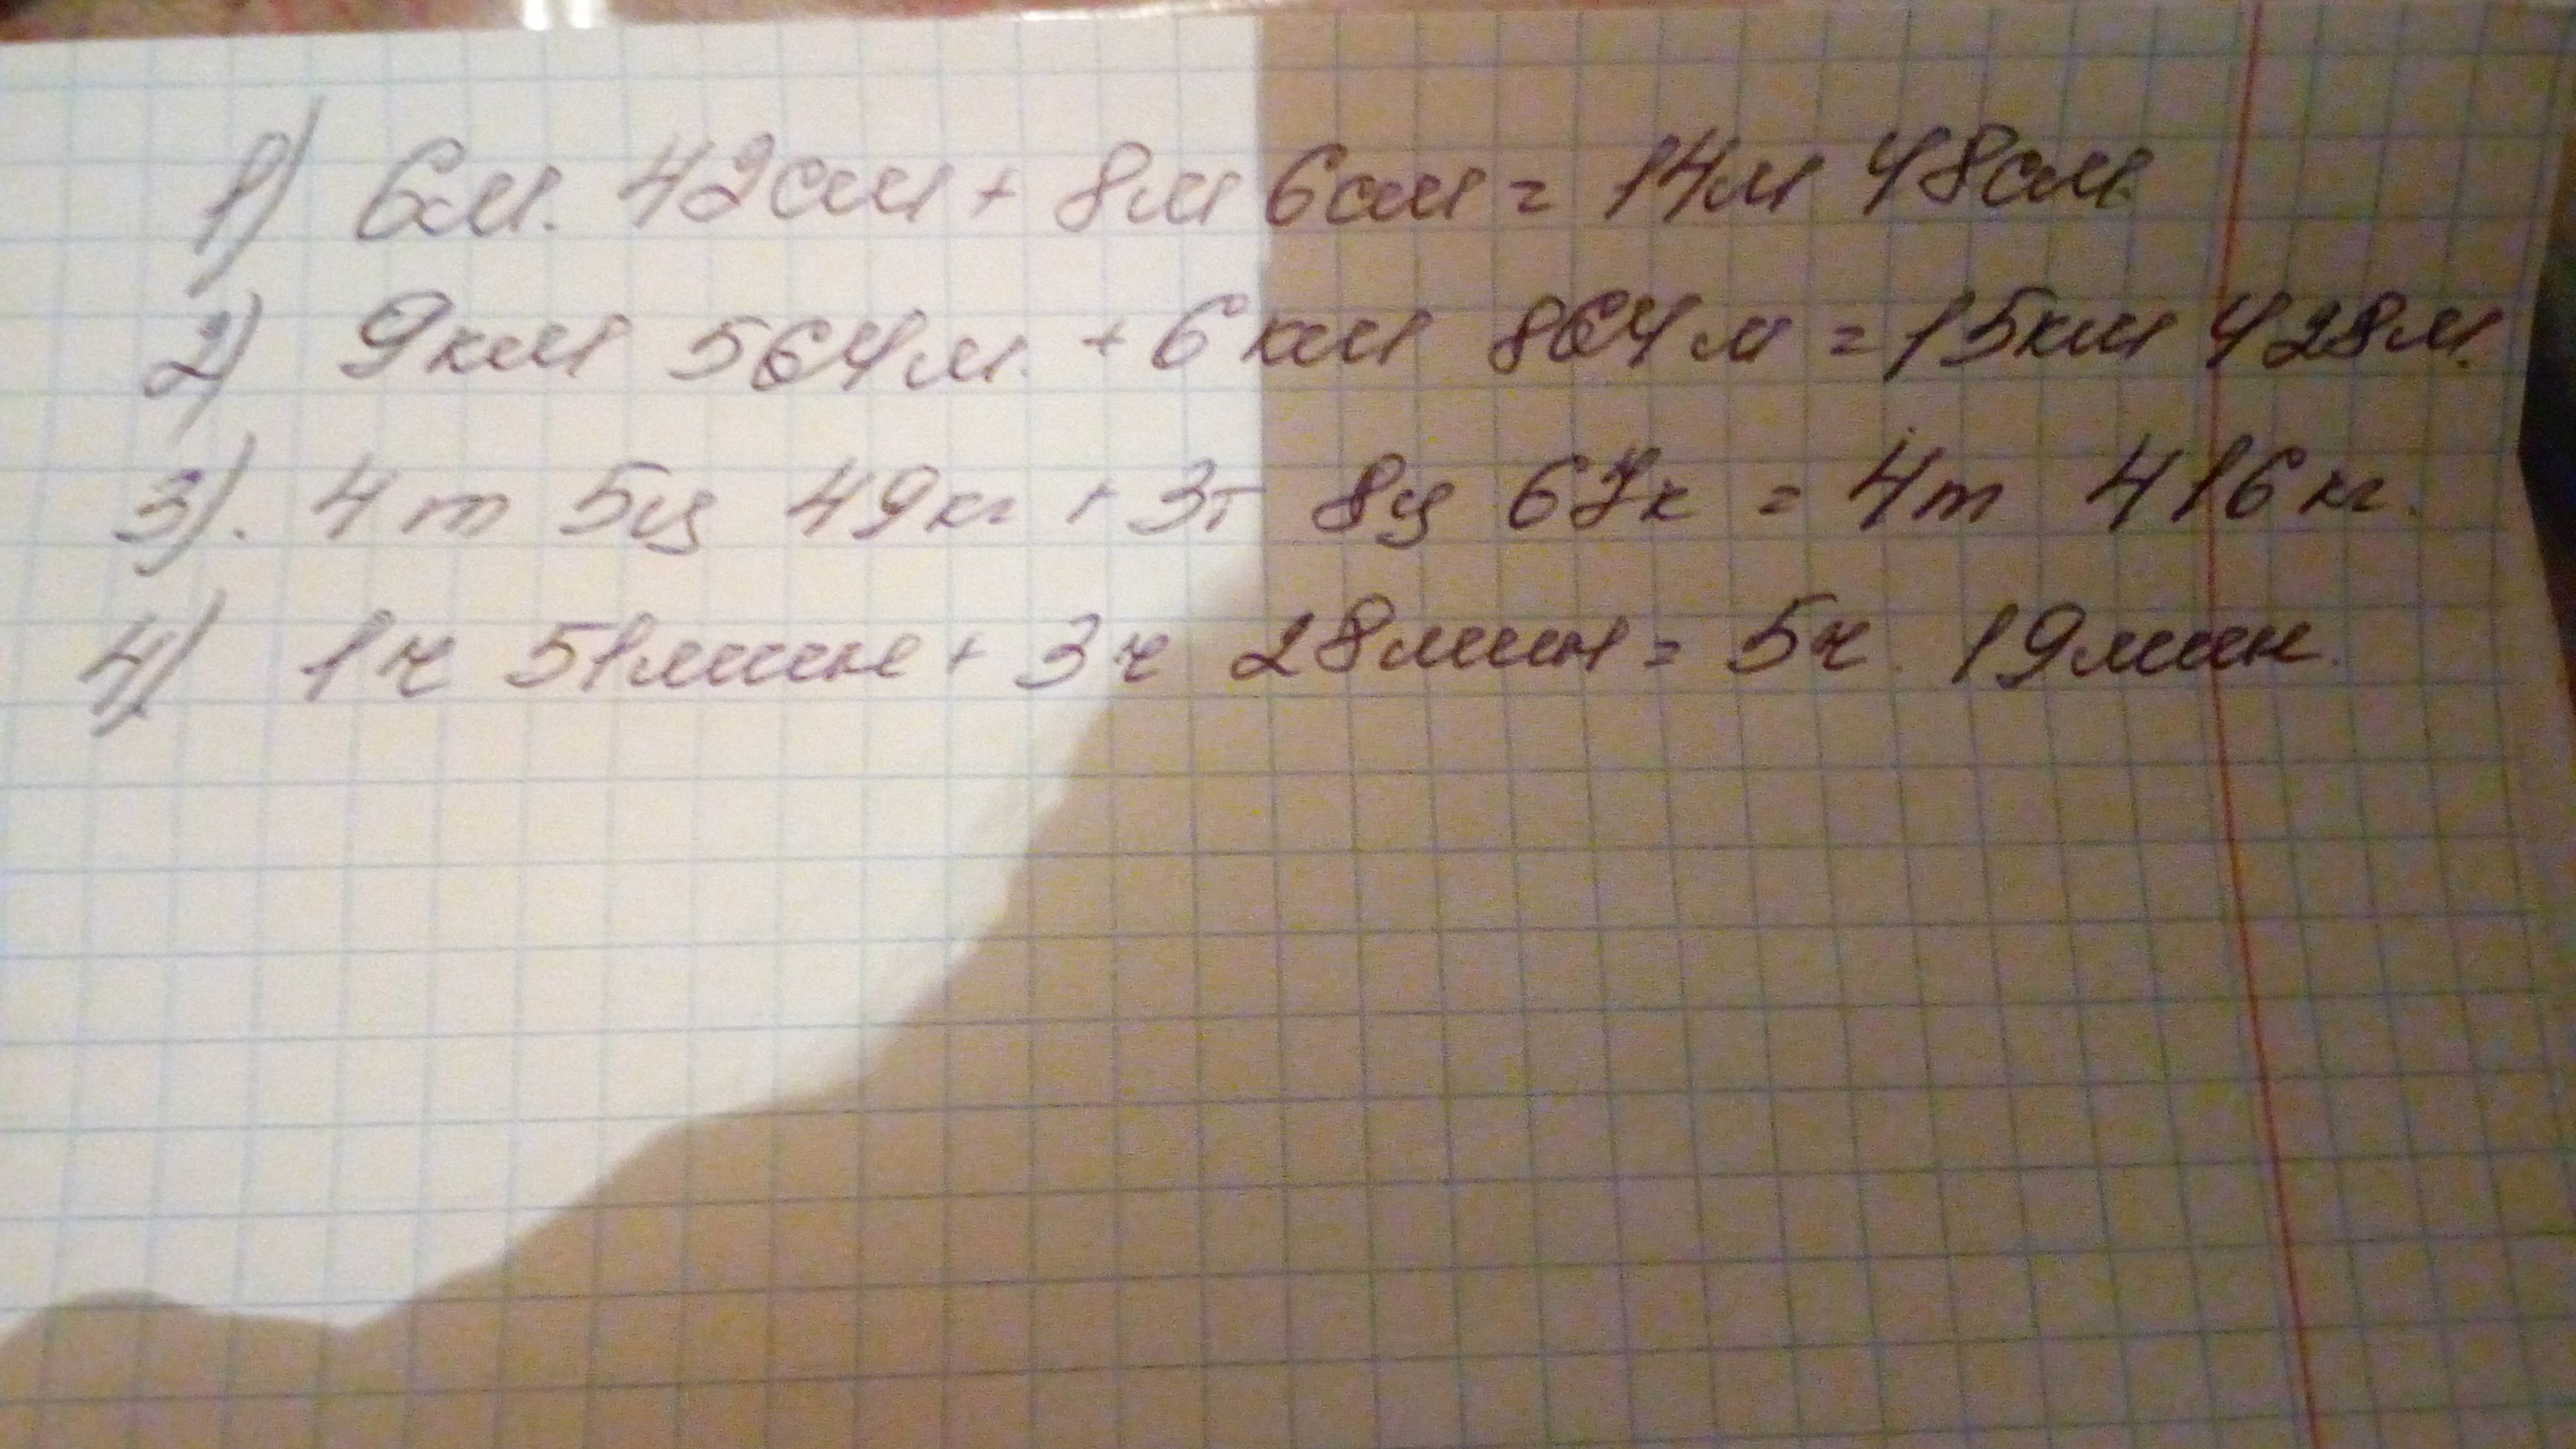 1) 6м. 42см + 8м 6см = 14м 48см.
2) 9км 564м. + 6км 864м = 15км 428м.
3). 4т 5ц 49кг + 3т 8ц 67к = 4т 416кг.
4) 1ч 51мин + 3ч 28мин = 5ч. 19мин.